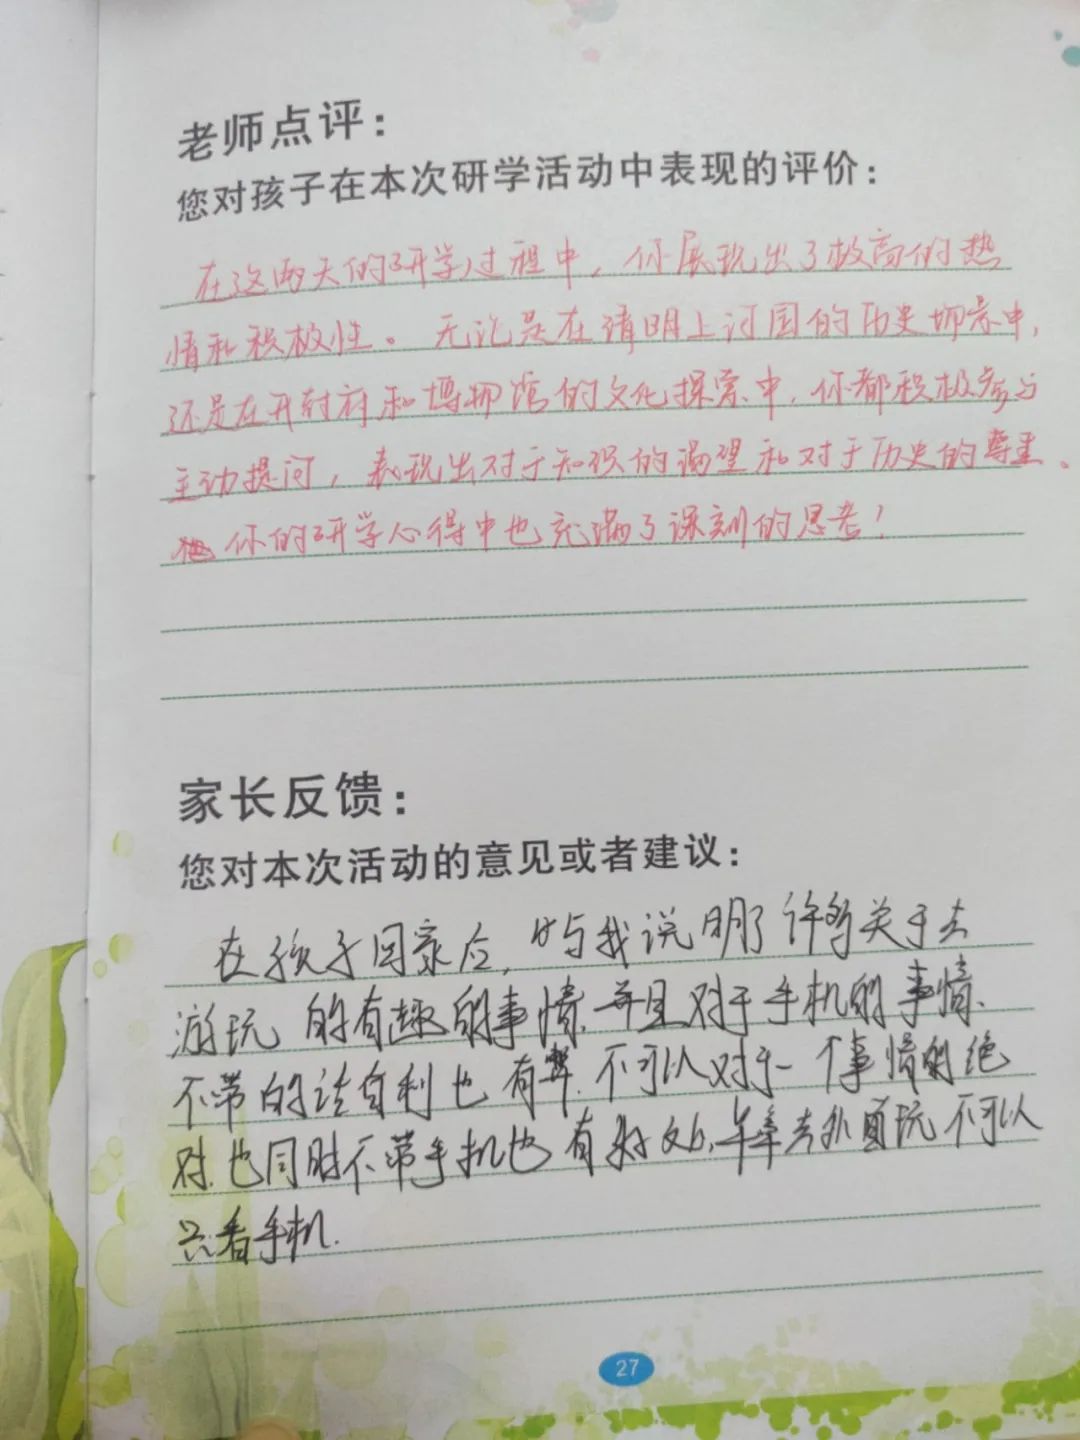 老师点评：
您对孩子在本次研学活动中表现的评价：
在这两天的研学过程中，你展现出了极高的热
情和积极性。无论是在清明上河园的历史场景中，
还是在开封府和博物馆的文化探索中，你都积极参与
主动提问，表现出对于知识的渴望和对于历史的尊重。
你的研学心得中也充满了深刻的思考！
家长反馈：
您对本次活动的意见或者建议：
在孩子回家后，与我说明了许多关于去
游玩的有趣的事情，并且对于手机的事情，
不带的话有利也有弊，不可以对于一个事情的绝
对，也同时不带手机也有好处，毕竟去外面玩不可以
只看手机.
27